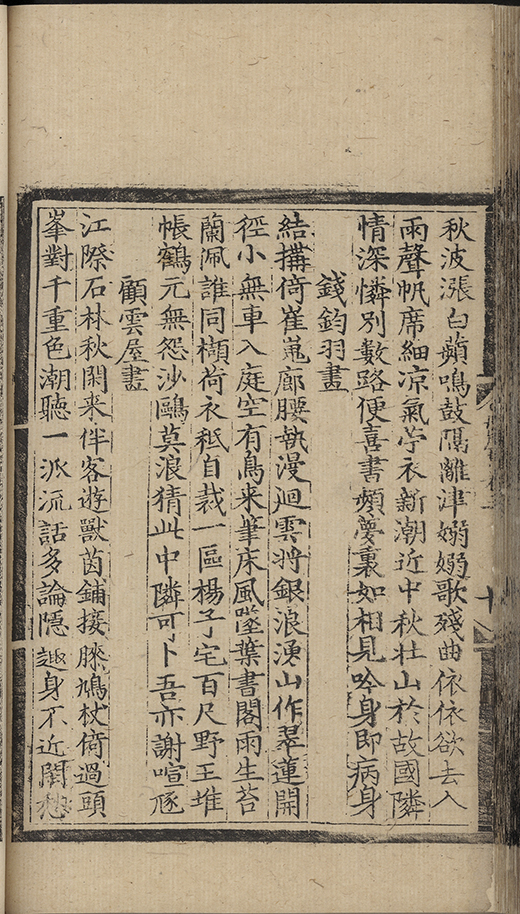 秋波漲白蘋鳴鼓隔離津嫋嫋歌殘曲依依欲去人
雨聲帆席細凉氣苧衣新潮近中秋壯山於故國隣
情深憐別數路便喜書頻夢裏如相見吟身即病身
錢鈞羽畫
結搆倚崔嵬廊腰執漫迴雲將銀浪湧山作翠蓮開
徑小無車入庭空有鳥来筆床風墜葉書閣雨生苔
蘭佩誰同擷荷衣秪自裁一區楊子宅百尺野王堆
帳鶴元無怨沙鷗莫浪猜此中隣可卜吾亦謝喧豗
顧雲屋畫
江際石林秋閑来伴客遊獸茵鋪接膝鳩杖倚過頭
峯對千重色潮聽一派流話多論隱趣身不近閙愁